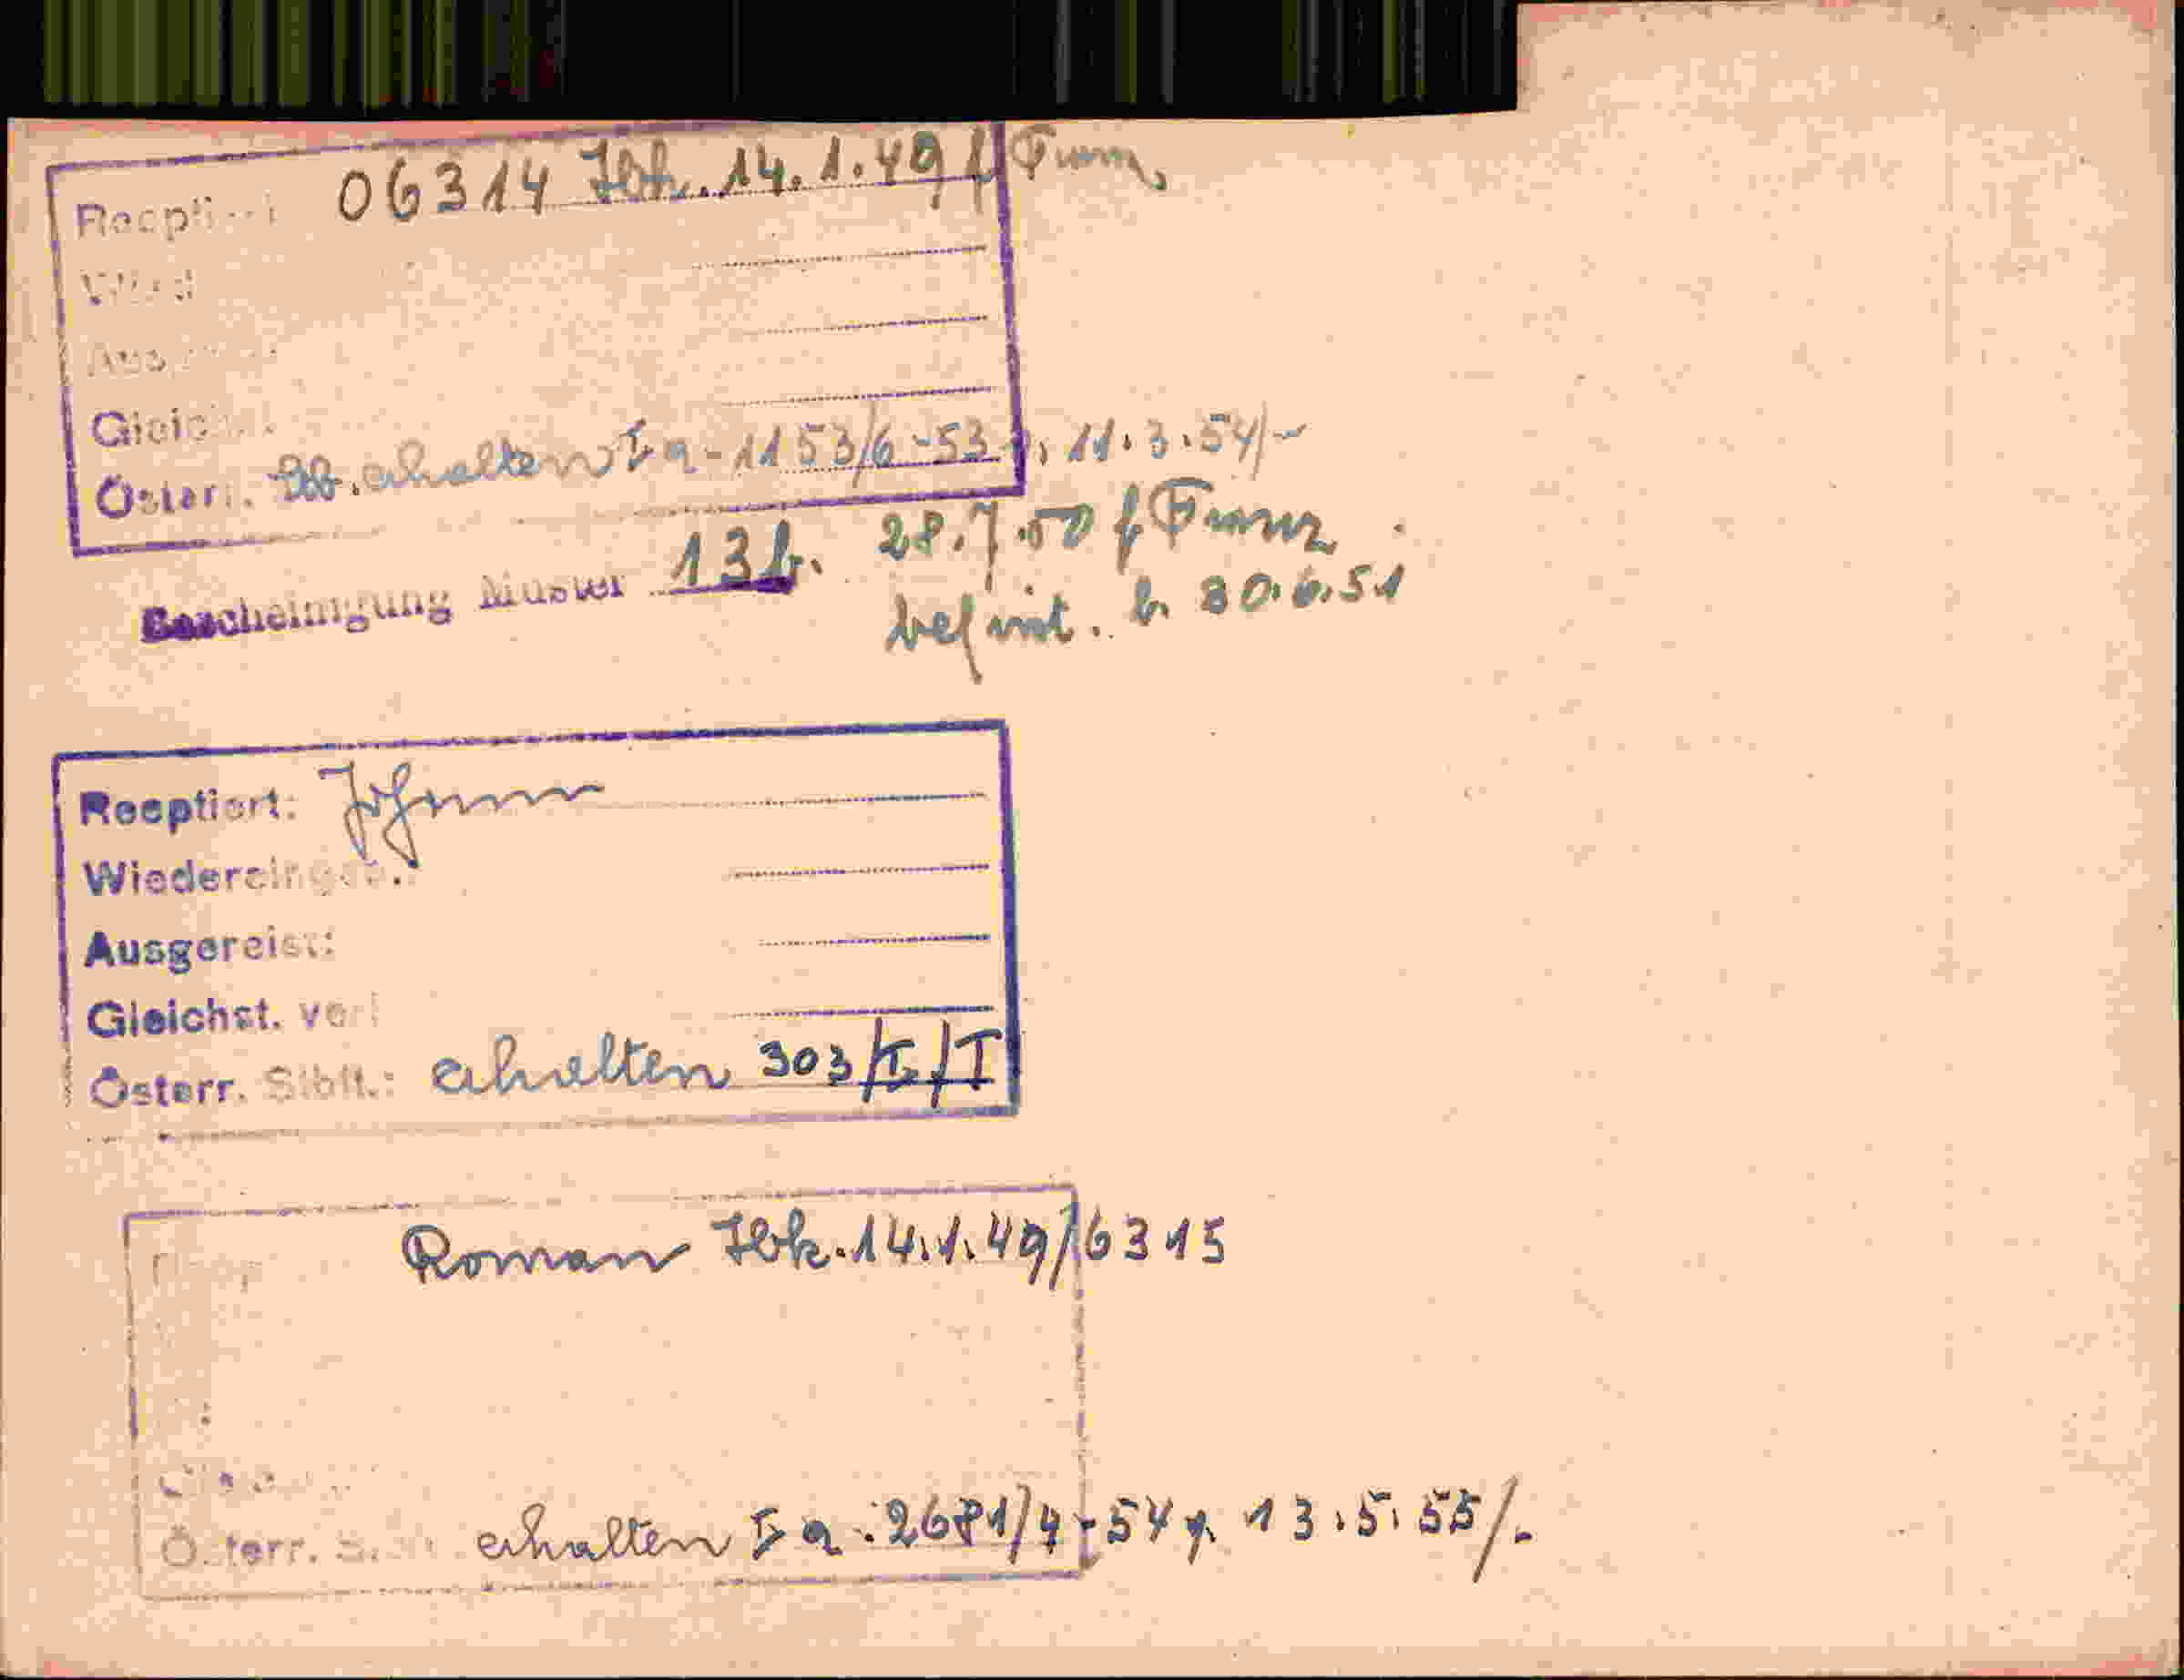 06314 Ibk. 14.1.49 f Franz
Reeptiert
Österr. erhalten Ia-1153/6-53 v. 11.3.54/-
Bescheinigung Muster 13b. 28.7.50 f Franz
befrist. b. 30.6.51
Reeptiert: Johann
Wiedereinger.:
Ausgereist:
Gleichst. verl
Österr. Stbft.: erhalten 303/I/I
Roman Ibk. 14.1.49/6315
Österr. erhalten Ia-2681/4-54 v. 13.5.55/-